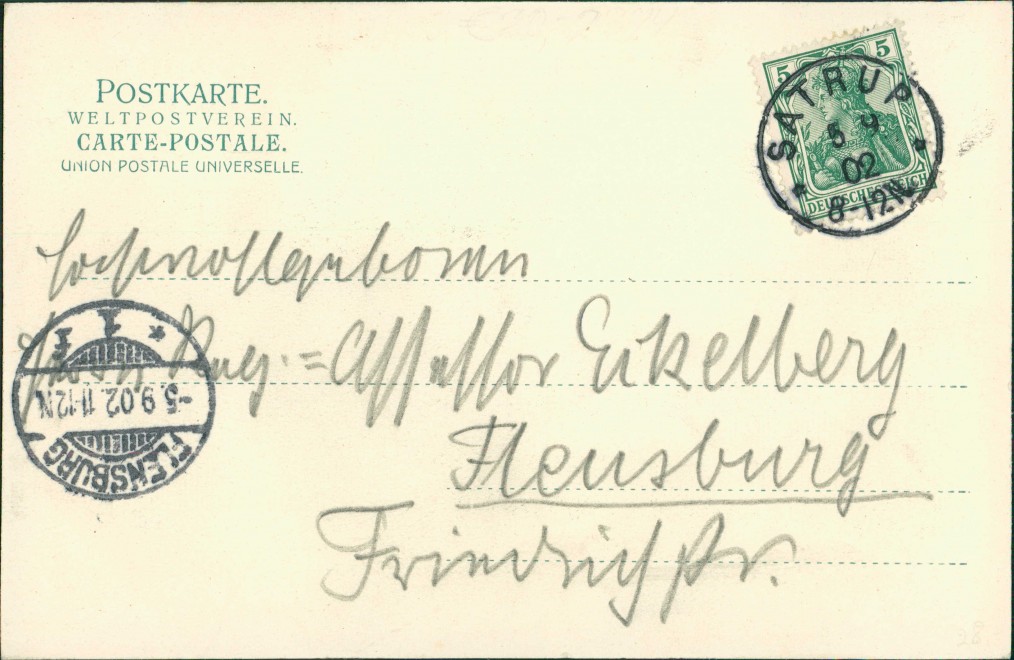 POSTKARTE.
WELTPOSTVEREIN.
CARTE-POSTALE.
UNION POSTALE UNIVERSELLE.
5 5
DEUTSCHES REICH
SATRUP
5 9
02
8-12N
Hochwohlgeboren
Herrn Reg.=Assessor Eickelberg
Flensburg
Friedrichstr.
FLENSBURG
-5.9.02.11-12N
* 1 r